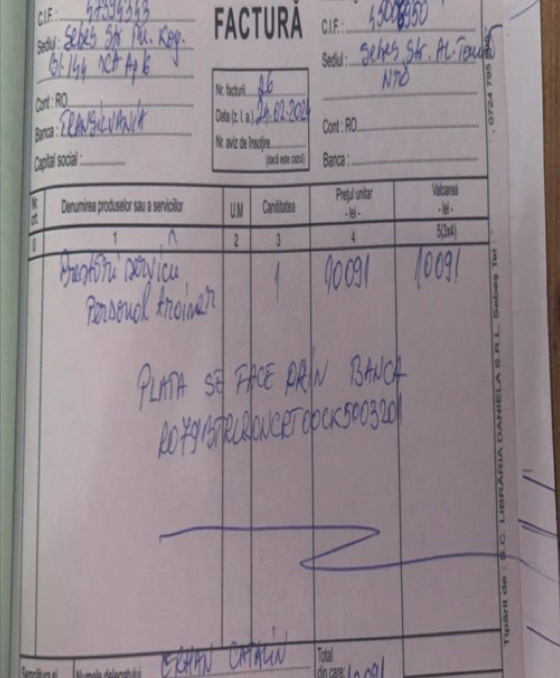 C.I.F.: 47594343
FACTURĂ
C.I.F.:
Sediul: Sebeș Str. M. Kog.
Bl. 144 Ap 6
Nr. facturii 26
Data (z. l. a.) 24.02.2024
Nr. aviz de însoțire
(dacă este cazul)
Sediul: Sebeș Str. Al.
Cont: RO
Banca: TRANSILVANIA
Capital social:
Cont: RO
Banca:
Nr. crt.
Denumirea produselor sau a serviciilor
U.M
Cantitatea
Prețul unitar
- lei -
Valoarea
- lei -
0 1 2 3 4 5(3x4)
Prestări servicii 1 10091 10091
Personal Trainer
PLATA SE FACE PRIN BANCA
Numele delegatului CATALIN
Total
din care: 10091
Tipărit de: S.C. LIBRĂRIA DANIELA S.R.L. Sebeș Tel